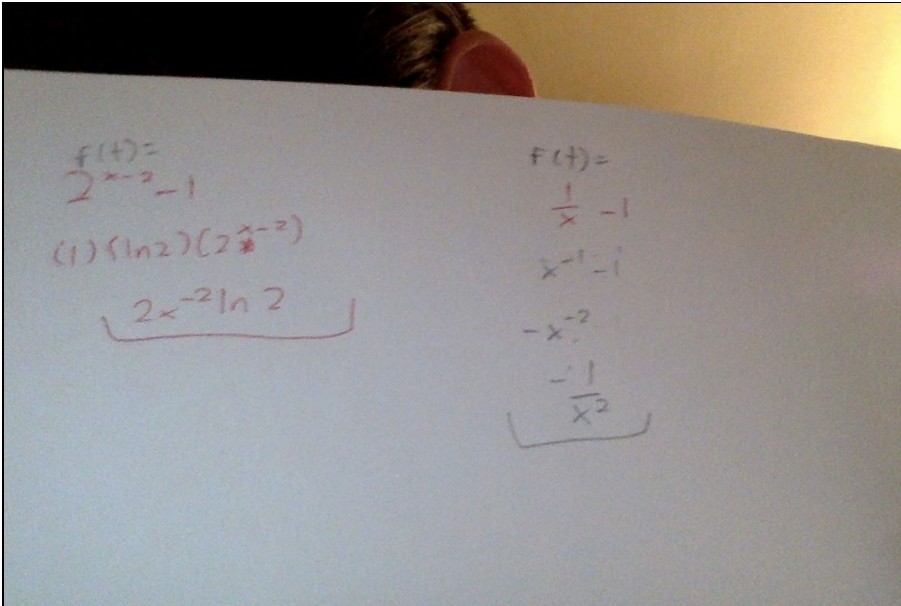 f(t)=
2^{x-2} - 1
(1)(ln2)(2^{x-2})
2x^{-2} ln 2
f(t)=
\frac{1}{x} - 1
x^{-1} - 1
-x^{-2}
-\frac{1}{x^2}